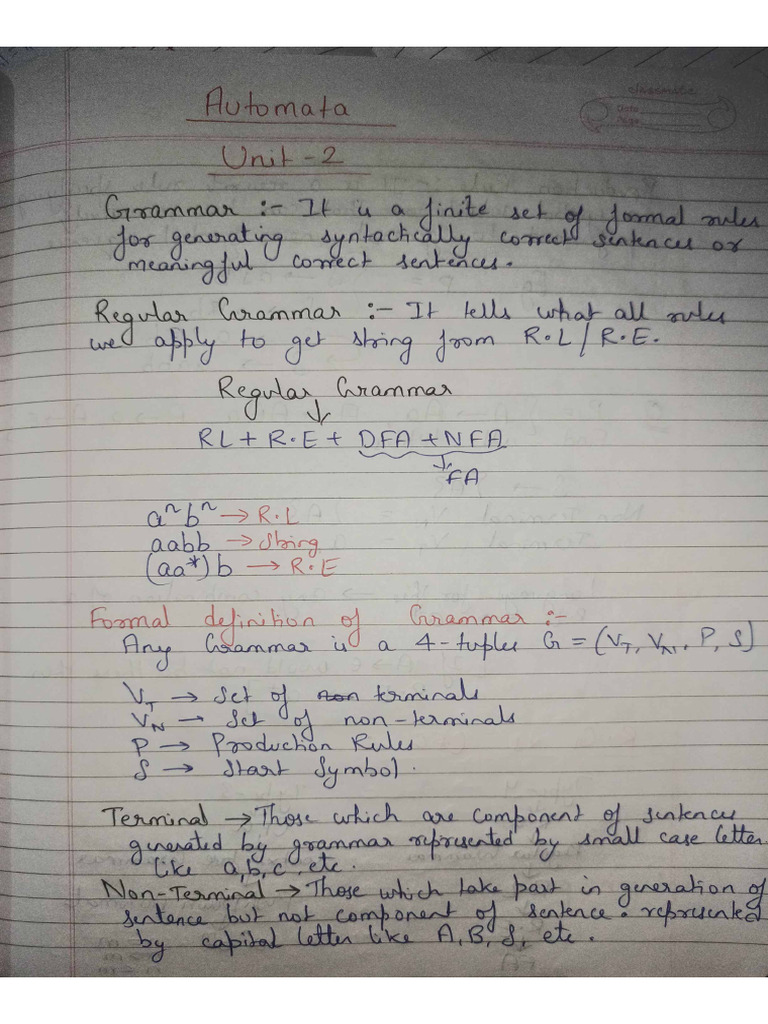 classmate
Date
Page
Automata
Unit - 2
Grammar :- It is a finite set of formal rules
for generating syntactically correct sentences or
meaningful correct sentences.
Regular Grammar :- It tells what all rules
we apply to get string from R.L/R.E.
Regular Grammar
↓
RL + R.E + DFA + NFA
↓
FA
aⁿbⁿ → R.L
aabb → String
(aa*)b → R.E
Formal definition of Grammar :-
Any Grammar is a 4-tuples G = (V_T, V_N, P, S)
V_T → Set of non terminals
V_N → Set of non-terminals
P → Production Rules
S → Start Symbol.
Terminal → Those which are component of sentences
generated by grammar represented by small case letter
like a, b, c, etc.
Non-Terminal → Those which take part in generation of
sentence but not component of sentence. represented
by capital letter like A, B, S, etc.